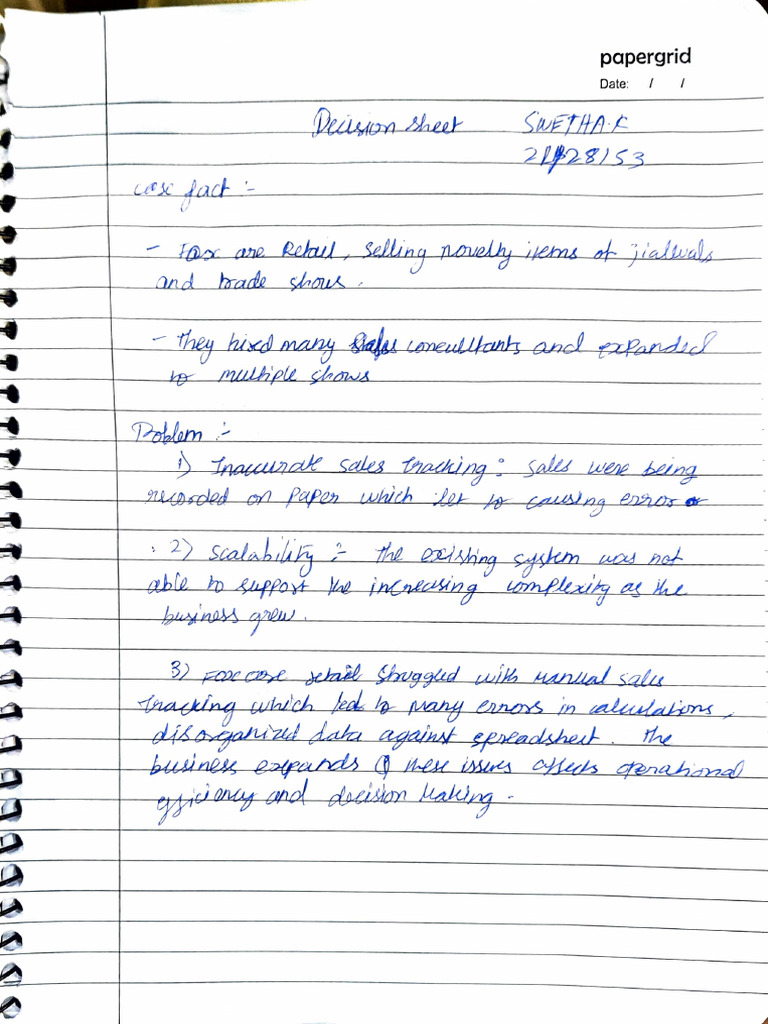 papergrid
Date: / /
Decision sheet SWETHA.K
28153
case fact :-
- are Retail, selling novelty items of
and trade shows.
- They hired many Sales consultants and expanded
to multiple shows
Problem :-
1) Inaccurate sales tracking : sales were being
recorded on paper which let to causing error
2) scalability :- the existing system was not
able to support the increasing complexity as the
business grew.
3) retail struggled with manual sales
tracking which led to many errors in calculations,
disorganized data against spreadsheet. The
business expands these issues affects operational
efficiency and decision making.